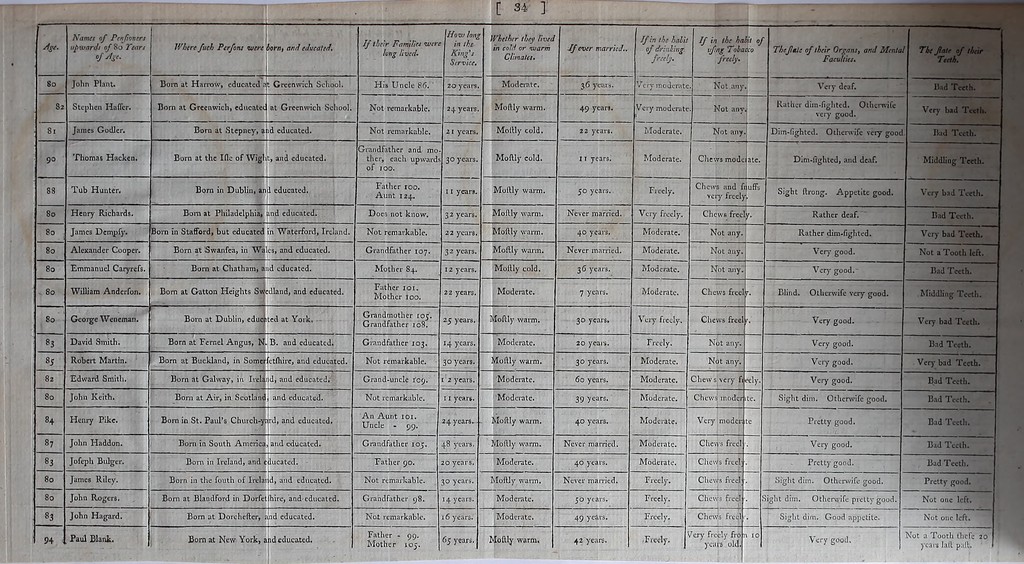 [ 34 ]
Age. Names of Penſioners upwards of 80 Years of Age. Where ſuch Perſons were born, and educated. If their Families were long lived. How long in the King's Service. Whether they lived in cold or warm Climates. If ever married. If in the habit of drinking freely. If in the habit of uſing Tobacco freely. The ſtate of their Organs, and Mental Faculties. The ſtate of their Teeth.
80 John Plant. Born at Harrow, educated at Greenwich School. His Uncle 86. 20 years. Moderate. 36 years. Very moderate. Not any. Very deaf. Bad Teeth.
82 Stephen Haſſer. Born at Greenwich, educated at Greenwich School. Not remarkable. 24 years. Moſtly warm. 49 years. Very moderate. Not any. Rather dim-ſighted. Otherwiſe very good. Very bad Teeth.
81 James Godler. Born at Stepney, and educated. Not remarkable. 21 years. Moſtly cold. 22 years. Moderate. Not any. Dim-ſighted. Otherwiſe very good Bad Teeth.
90 Thomas Hacken. Born at the Iſle of Wight, and educated. Grandfather and mother, each upwards of 100. 30 years. Moſtly cold. 11 years. Moderate. Chews moderate. Dim-ſighted, and deaf. Middling Teeth.
88 Tub Hunter. Born in Dublin, and educated. Father 100. Aunt 124. 11 years. Moſtly warm. 50 years. Freely. Chews and ſnuffs very freely. Sight ſtrong. Appetite good. Very bad Teeth.
80 Henry Richards. Born at Philadelphia, and educated. Does not know. 32 years. Moſtly warm. Never married. Very freely. Chews freely. Rather deaf. Bad Teeth.
80 James Dempſy. Born in Stafford, but educated in Waterford, Ireland. Not remarkable. 22 years. Moſtly warm. 40 years. Moderate. Not any. Rather dim-ſighted. Very bad Teeth.
80 Alexander Cooper. Born at Swanſea, in Wales, and educated. Grandfather 107. 32 years. Moſtly warm. Never married. Moderate. Not any. Very good. Not a Tooth left.
80 Emmanuel Caryreſs. Born at Chatham, and educated. Mother 84. 12 years. Moſtly cold. 36 years. Moderate. Not any. Very good. Bad Teeth.
80 William Anderſon. Born at Gatton Heights Swedland, and educated. Father 101. Mother 100. 22 years. Moderate. 7 years. Moderate. Chews freely. Blind. Otherwiſe very good. Middling Teeth.
80 George Weneman. Born at Dublin, educated at York. Grandmother 105. Grandfather 108. 25 years. Moſtly warm. 30 years. Very freely. Chews freely. Very good. Very bad Teeth.
83 David Smith. Born at Fernel Angus, N. B. and educated. Grandfather 103. 14 years. Moderate. 20 years. Freely. Not any. Very good. Bad Teeth.
85 Robert Martin. Born at Buckland, in Somerſetſhire, and educated. Not remarkable. 30 years. Moſtly warm. 30 years. Moderate. Not any. Very good. Very bad Teeth.
82 Edward Smith. Born at Galway, in Ireland, and educated. Grand-uncle 109. 12 years. Moderate. 60 years. Moderate. Chews very freely. Very good. Bad Teeth.
80 John Keith. Born at Air, in Scotland, and educated. Not remarkable. 11 years. Moderate. 39 years. Moderate. Chews moderate. Sight dim. Otherwiſe good. Bad Teeth.
84 Henry Pike. Born in St. Paul's Church-yard, and educated. An Aunt 101. Uncle - 99. 24 years. Moſtly warm. 40 years. Moderate. Very moderate Pretty good. Bad Teeth.
87 John Haddon. Born in South America, and educated. Grandfather 105. 48 years. Moſtly warm. Never married. Moderate. Chews freely. Very good. Bad Teeth.
83 Joſeph Bulger. Born in Ireland, and educated. Father 90. 20 years. Moderate. 40 years. Moderate. Chews freely. Pretty good. Bad Teeth.
80 James Riley. Born in the ſouth of Ireland, and educated. Not remarkable. 30 years. Moſtly warm. Never married. Freely. Chews freely. Sight dim. Otherwiſe good. Pretty good.
80 John Rogers. Born at Blandford in Dorſetſhire, and educated. Grandfather 98. 14 years. Moderate. 50 years. Freely. Chews freely. Sight dim. Otherwiſe pretty good. Not one left.
83 John Hagard. Born at Dorcheſter, and educated. Not remarkable. 16 years. Moderate. 49 years. Freely. Chews freely. Sight dim. Good appetite. Not one left.
94 Paul Blank. Born at New York, and educated. Father - 99. Mother 105. 65 years. Moſtly warm. 42 years. Freely. Very freely from 10 years old. Very good. Not a Tooth theſe 20 years laſt paſt.